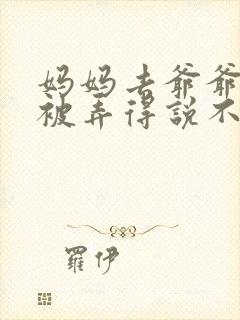 妈妈去爷爷
被弄得說不
羅伊